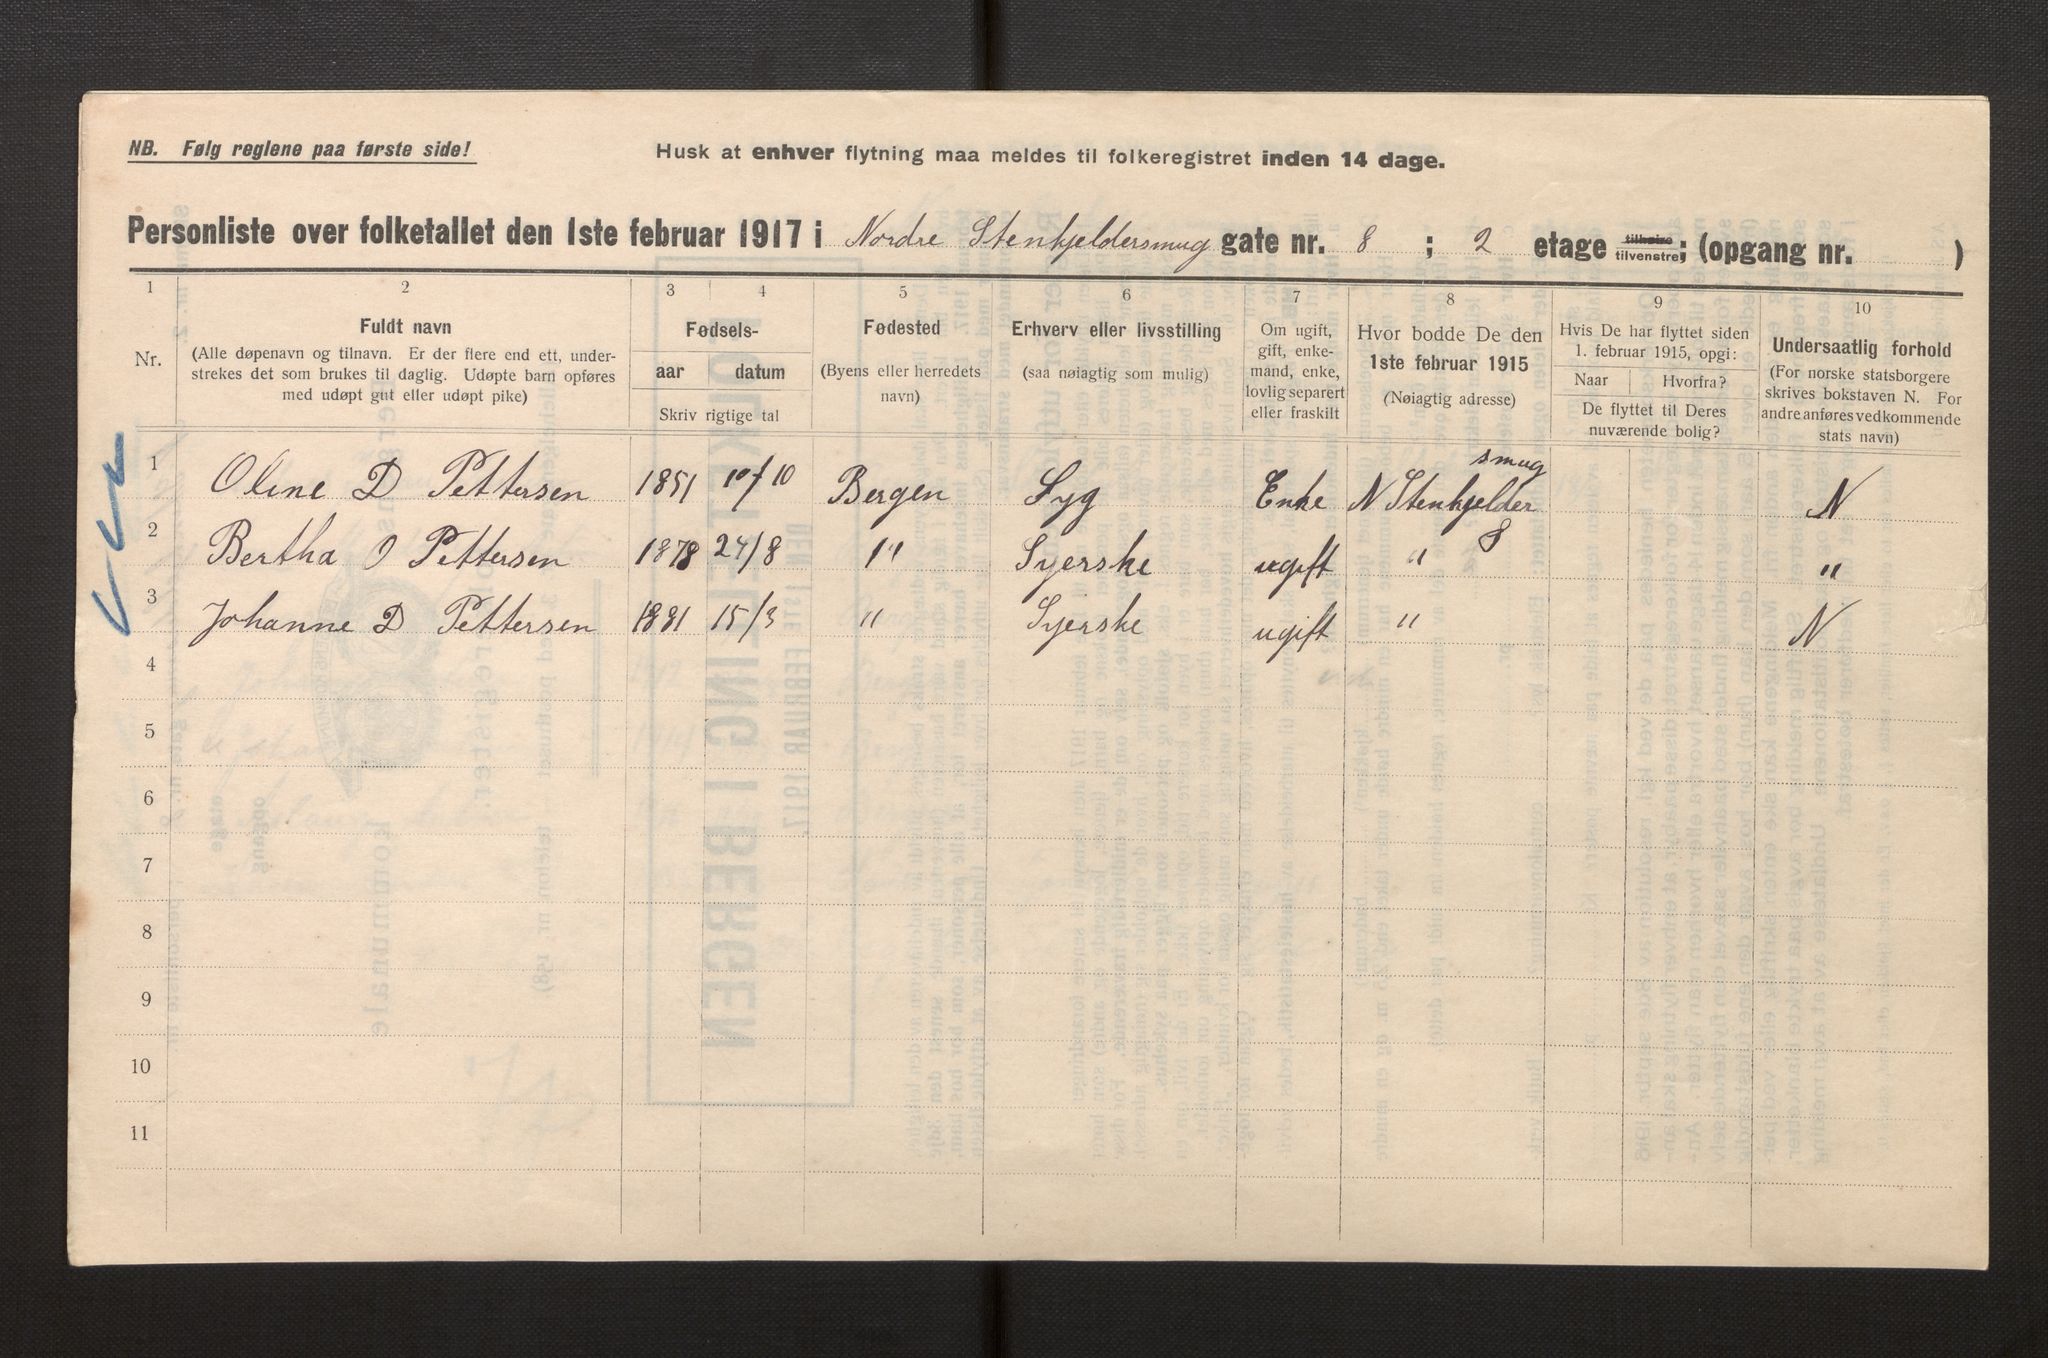 NB. Følg reglene paa første side!
Husk at enhver flytning maa meldes til folkeregistret inden 14 dage.
Personliste over folketallet den 1ste februar 1917 i Nordre Stenkjeldersmug gate nr. 8 ; 2 etage tilhøire tilvenstre; (opgang nr. )
1 2 3 4 5 6 7 8 9 10
Nr.
Fuldt navn
(Alle døpenavn og tilnavn. Er der flere end ett, under-
strekes det som brukes til daglig. Udøpte barn opføres
med udøpt gut eller udøpt pike)
Fødsels-
aar datum
Skriv rigtige tal
Fødested
(Byens eller herredets
navn)
Erhverv eller livsstilling
(saa nøiagtig som mulig)
Om ugift,
gift, enke-
mand, enke,
lovlig separert
eller fraskilt
Hvor bodde De den
1ste februar 1915
(Nøiagtig adresse)
Hvis De har flyttet siden
1. februar 1915, opgi:
Naar Hvorfra?
De flyttet til Deres
nuværende bolig?
Undersaatlig forhold
(For norske statsborgere
skrives bokstaven N. For
andre anføres vedkommende
stats navn)
1 Oline D Pettersen 1851 10/10 Bergen Syg Enke N Stenkjelder smug 8 N
2 Bertha O Pettersen 1878 24/8 " Syerske ugift " "
3 Johanne D Pettersen 1881 15/3 " Syerske ugift " N
4
5
6
7
8
9
10
11